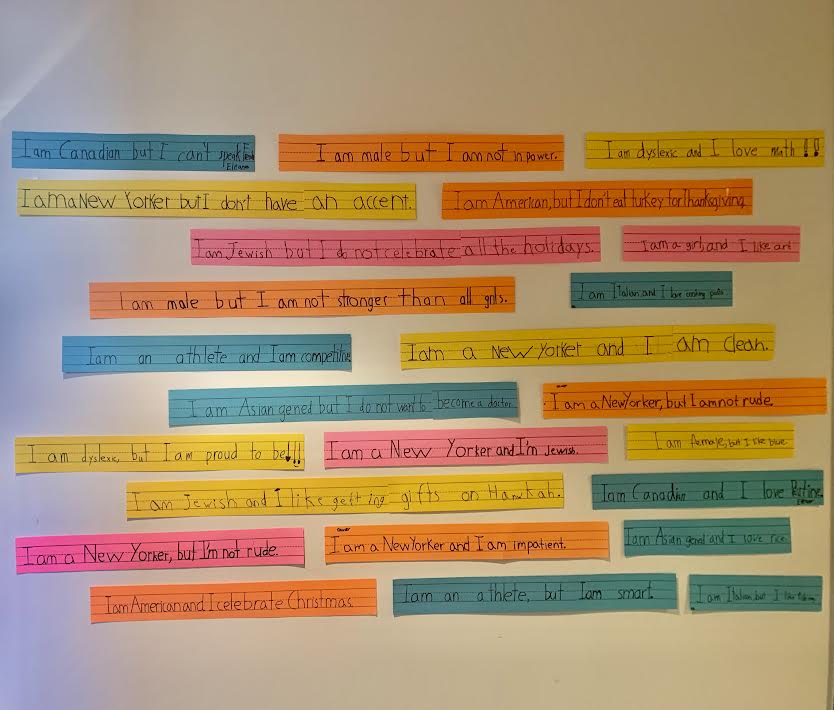 I am Canadian but I can't speak
Eleanor
I am male but I am not in power.
I am dyslexic and I love math !!
I am a New Yorker but I don't have an accent.
I am American, but I don't eat turkey for Thanksgiving.
I am Jewish but I do not celebrate all the holidays.
I am a girl, and I like art
I am male but I am not stronger than all girls.
I am Italian and I love cooking pasta
I am an athlete and I am competitive
I am a New Yorker and I am clean.
I am Asian gened but I do not want to become a doctor.
I am a New Yorker, but I am not rude.
I am dyslexic, but I am proud to be!!!
I am a New Yorker and I'm Jewish.
I am female, but I like blue.
I am Jewish and I like getting gifts on Hanukah.
I am Canadian and I love
I am a New Yorker, but I'm not rude.
I am a New Yorker and I am impatient.
I am Asian gened and I love rice.
I am American and I celebrate Christmas.
I am an athlete, but I am smart.
I am Italian but I